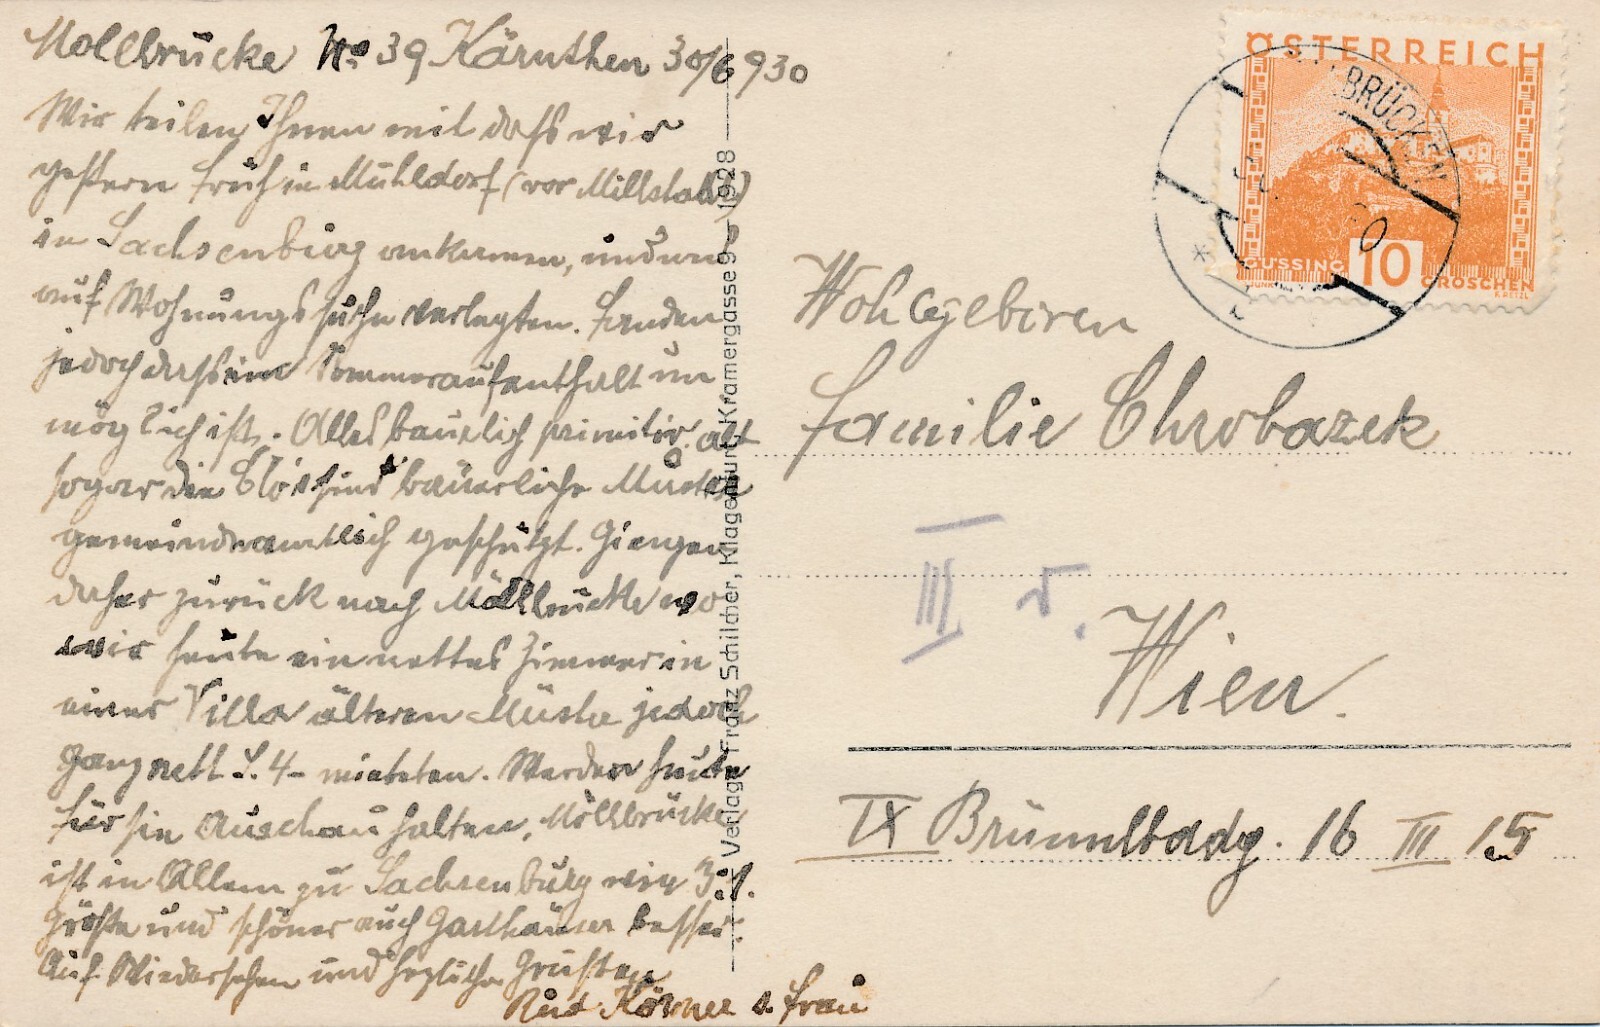 Mollbrücke No 39 Kärnthen 30/6 930
Wir teilen Ihnen mit daß wir
gestern früh in Mühldorf (vor Millstatt)
in Sachsenburg ankamen, und uns
auf Wohnungssuche verlegten. Fanden
jedoch daß ein Sommeraufenthalt un
möglich ist. Alles bäurlich primitiv, alt
sogar die Clos sind bäuerliche Muster
gemeindeamtlich geschützt. Giengen
daher zurück nach Möllbrücke wo
wir heute ein nettes Zimmer in
einer Villa älteren Musters jedoch
ganz nett S. 4- mieteten. Werden heute
für sie Auschau halten. Möllbrücke
ist in Allem zu Sachsenburg wie 3:1.
Größer und schöner auch Gasthäuser besser.
Auf Wiedersehen und herzliche Grüße
Rud Körner s. Frau
Verlag Franz Schilcher, Klagenfurt, Kramergasse 9 1928
ÖSTERREICH
GÜSSING 10 GROSCHEN
BRÜCKEN
Wohlgeboren
Familie Chrobazek
III
Wien.
IX Brünnlbadg. 16 III 15